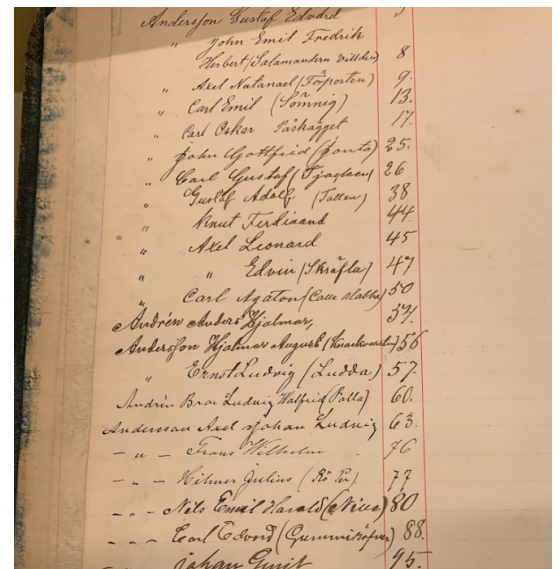 Andersson Gustaf Edvard 5
" John Emil Fredrik
Herbert (Salamandern 8
" Axel Natanael (Förporten) 9.
" Carl Emil (Sömnig) 13.
" Carl Oskar Påskägget 17.
" John Gottfrid 25.
" Carl Gustaf 26
" Gustaf Adolf (Tatten) 38
" Knut Ferdinand 44.
" Axel Leonard 45
" " Edvin (Skräfla) 47
" Carl Agaton (Calle Slabba) 50
Andrén Anders Hjalmar, 54.
Andersson Hjalmar August 56
" Ernst Ludvig (Ludda) 57.
Andrén Ludvig Walfrid 60.
Andersson Axel Johan Ludvig 63.
- " - Frans Wilhelm 76
- " - Hilmer Julius (Rö Per) 77
- " - Nils Emil Harald (Nius) 80
- " - Carl Edvard 88.
Johan 95.